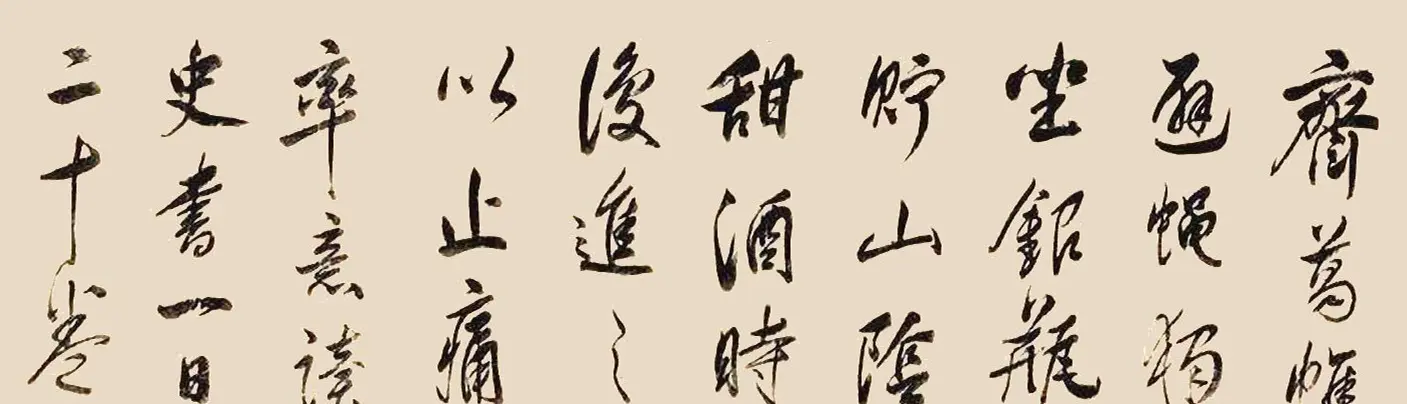 齋葛帷
避蝇獨
坐銀瓶
贮山陰
甜酒時
復進之
以止痛
率意讀
史書一日
二十卷